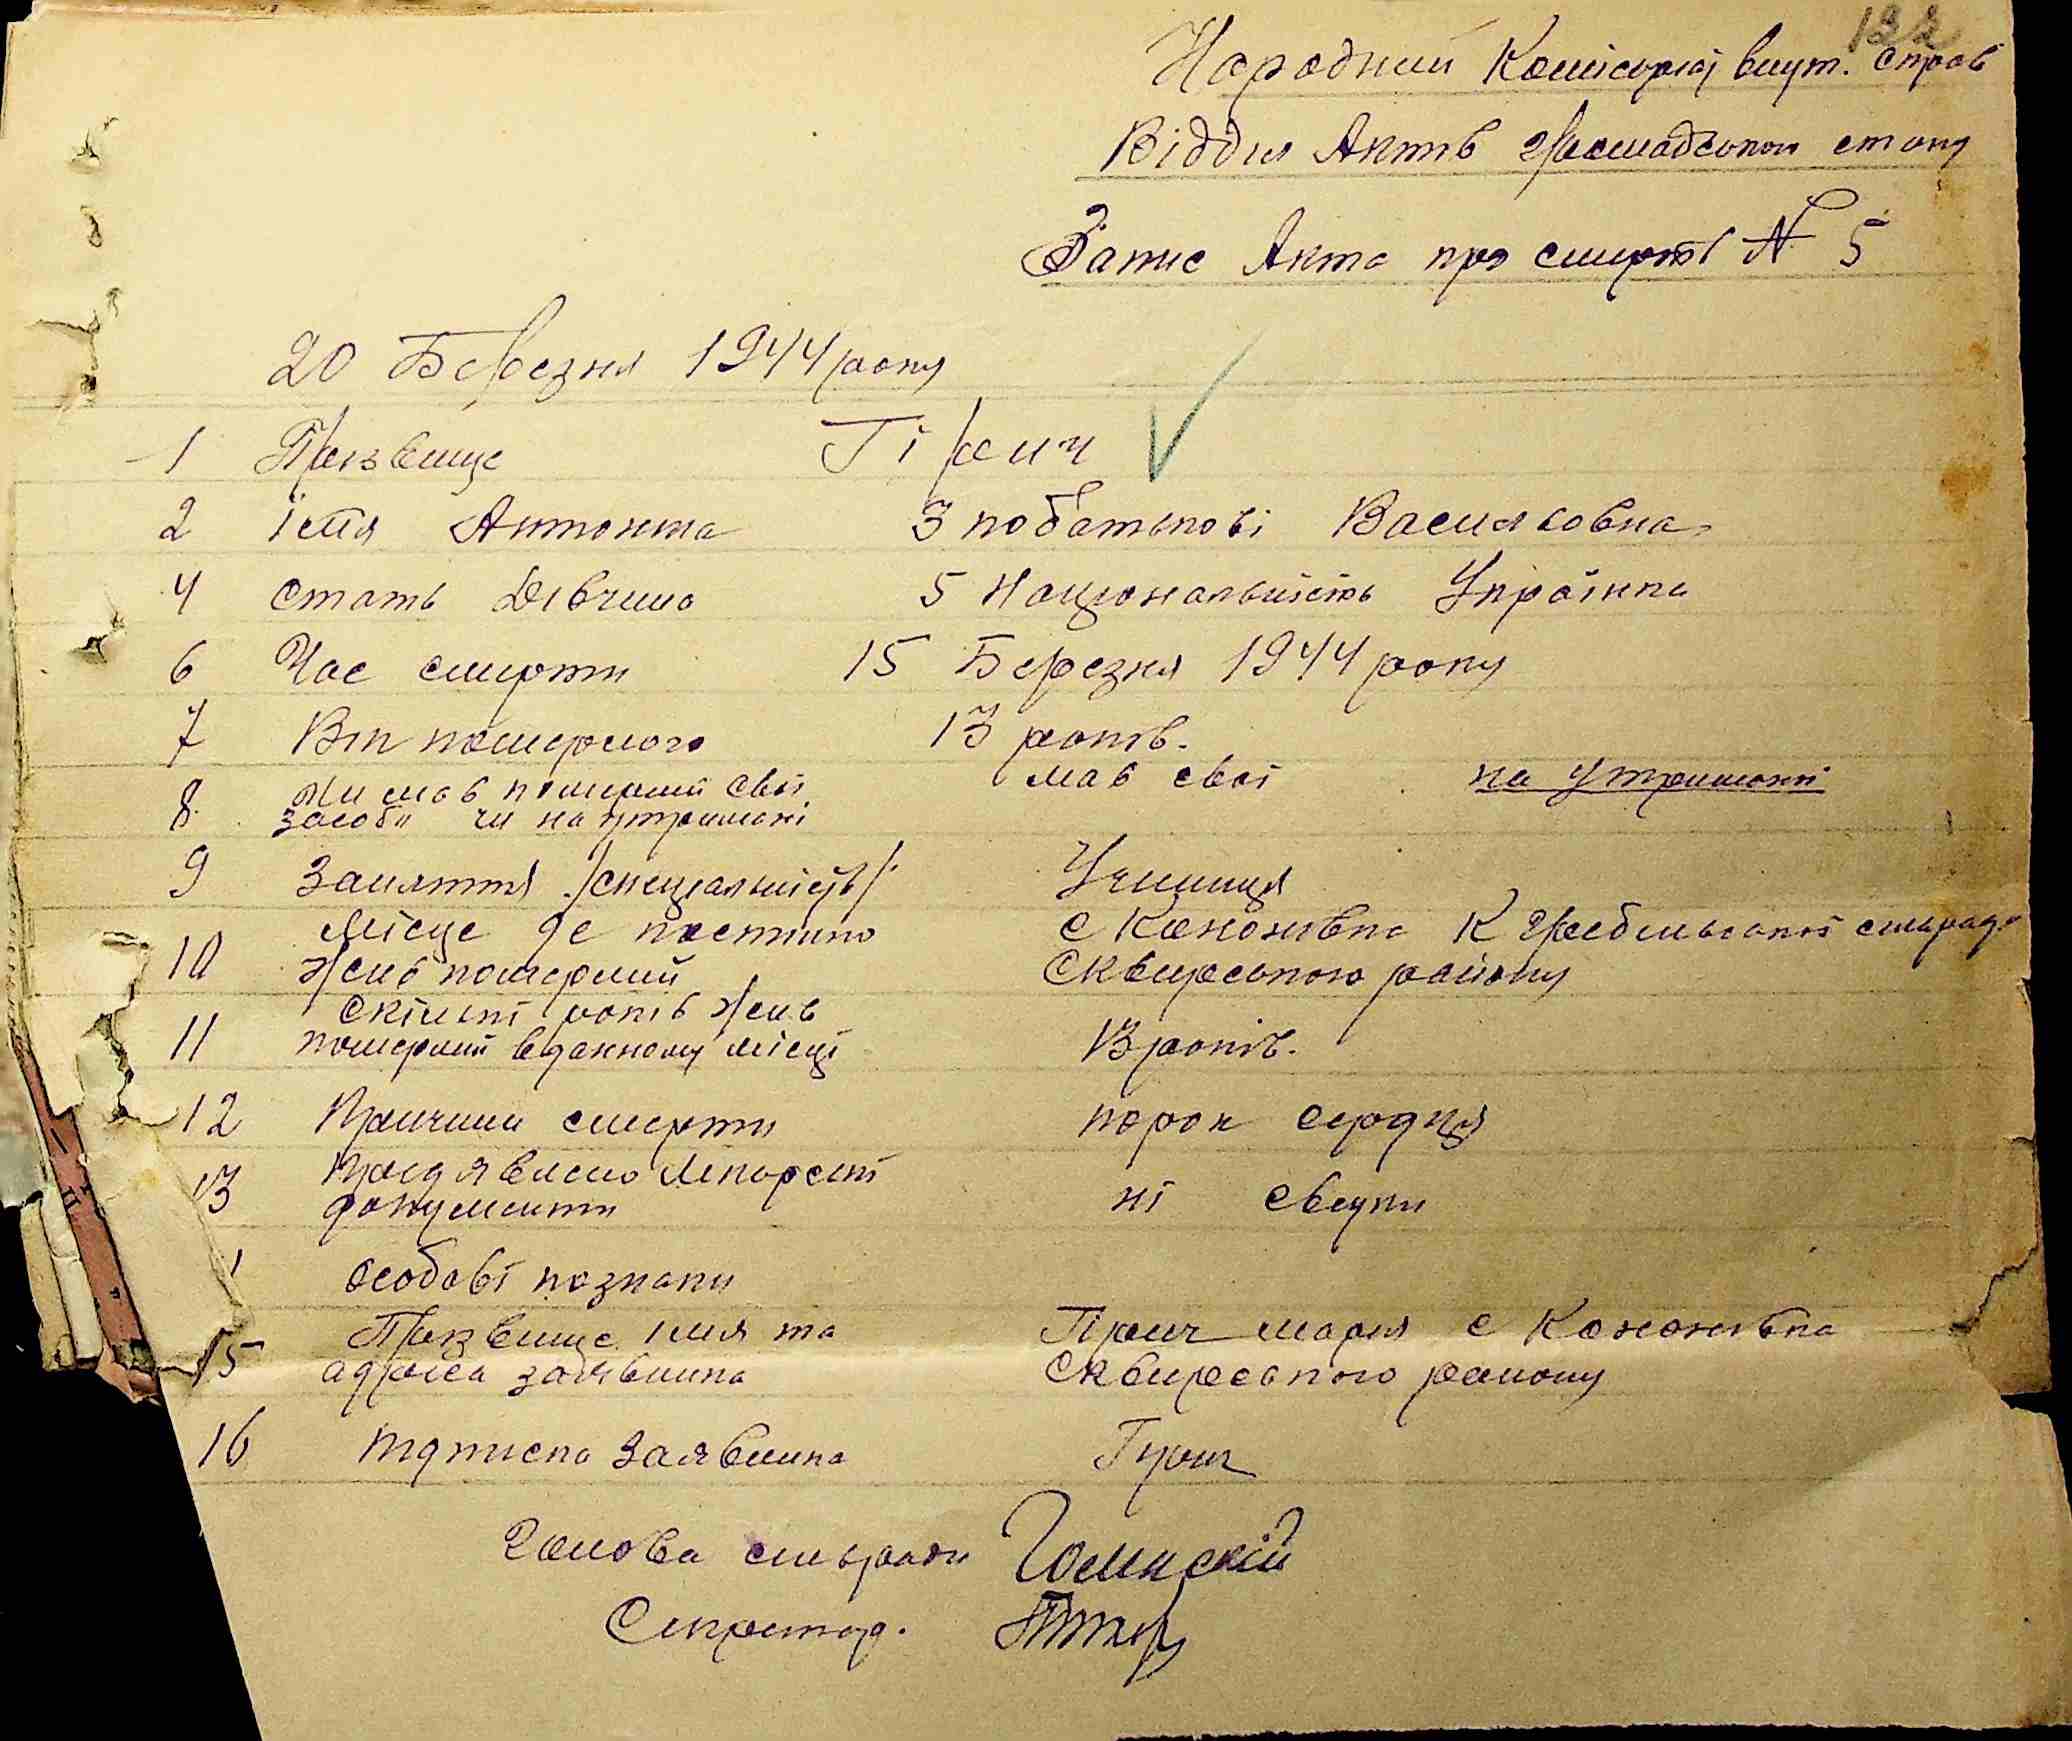 132
Народний Комісаріят внут. справ
Відділ Актів громадського стану
Запис Акта про смерть № 5
20 Березня 1944 року
1 Прізвище Гірич
2 їмя Антоніна 3 побатькові Васильовна
4 стать Дівчина 5 Національність Українка
6 Час смерти 15 Березня 1944 року
7 Вік померлого 13 років.
8. Чи мав померший свої засоби чи на утримані мав свої на утримані
9 Заняття /спеціальність/ Учениця
10 Місце де постійно с Кононівка К сільради
жив померший Сквирського району
11 Скількі років жив
померший в данному місці 13 років.
12 Причини смерти порок сердця
13 Предявлено лікарські
документи ні
особові познаки
15 Прізвище імя та Гірич мария с Кононівка
адреса заявника Сквирського району
16 підписка Заявника Гірич
Голова сільради
Секретар.